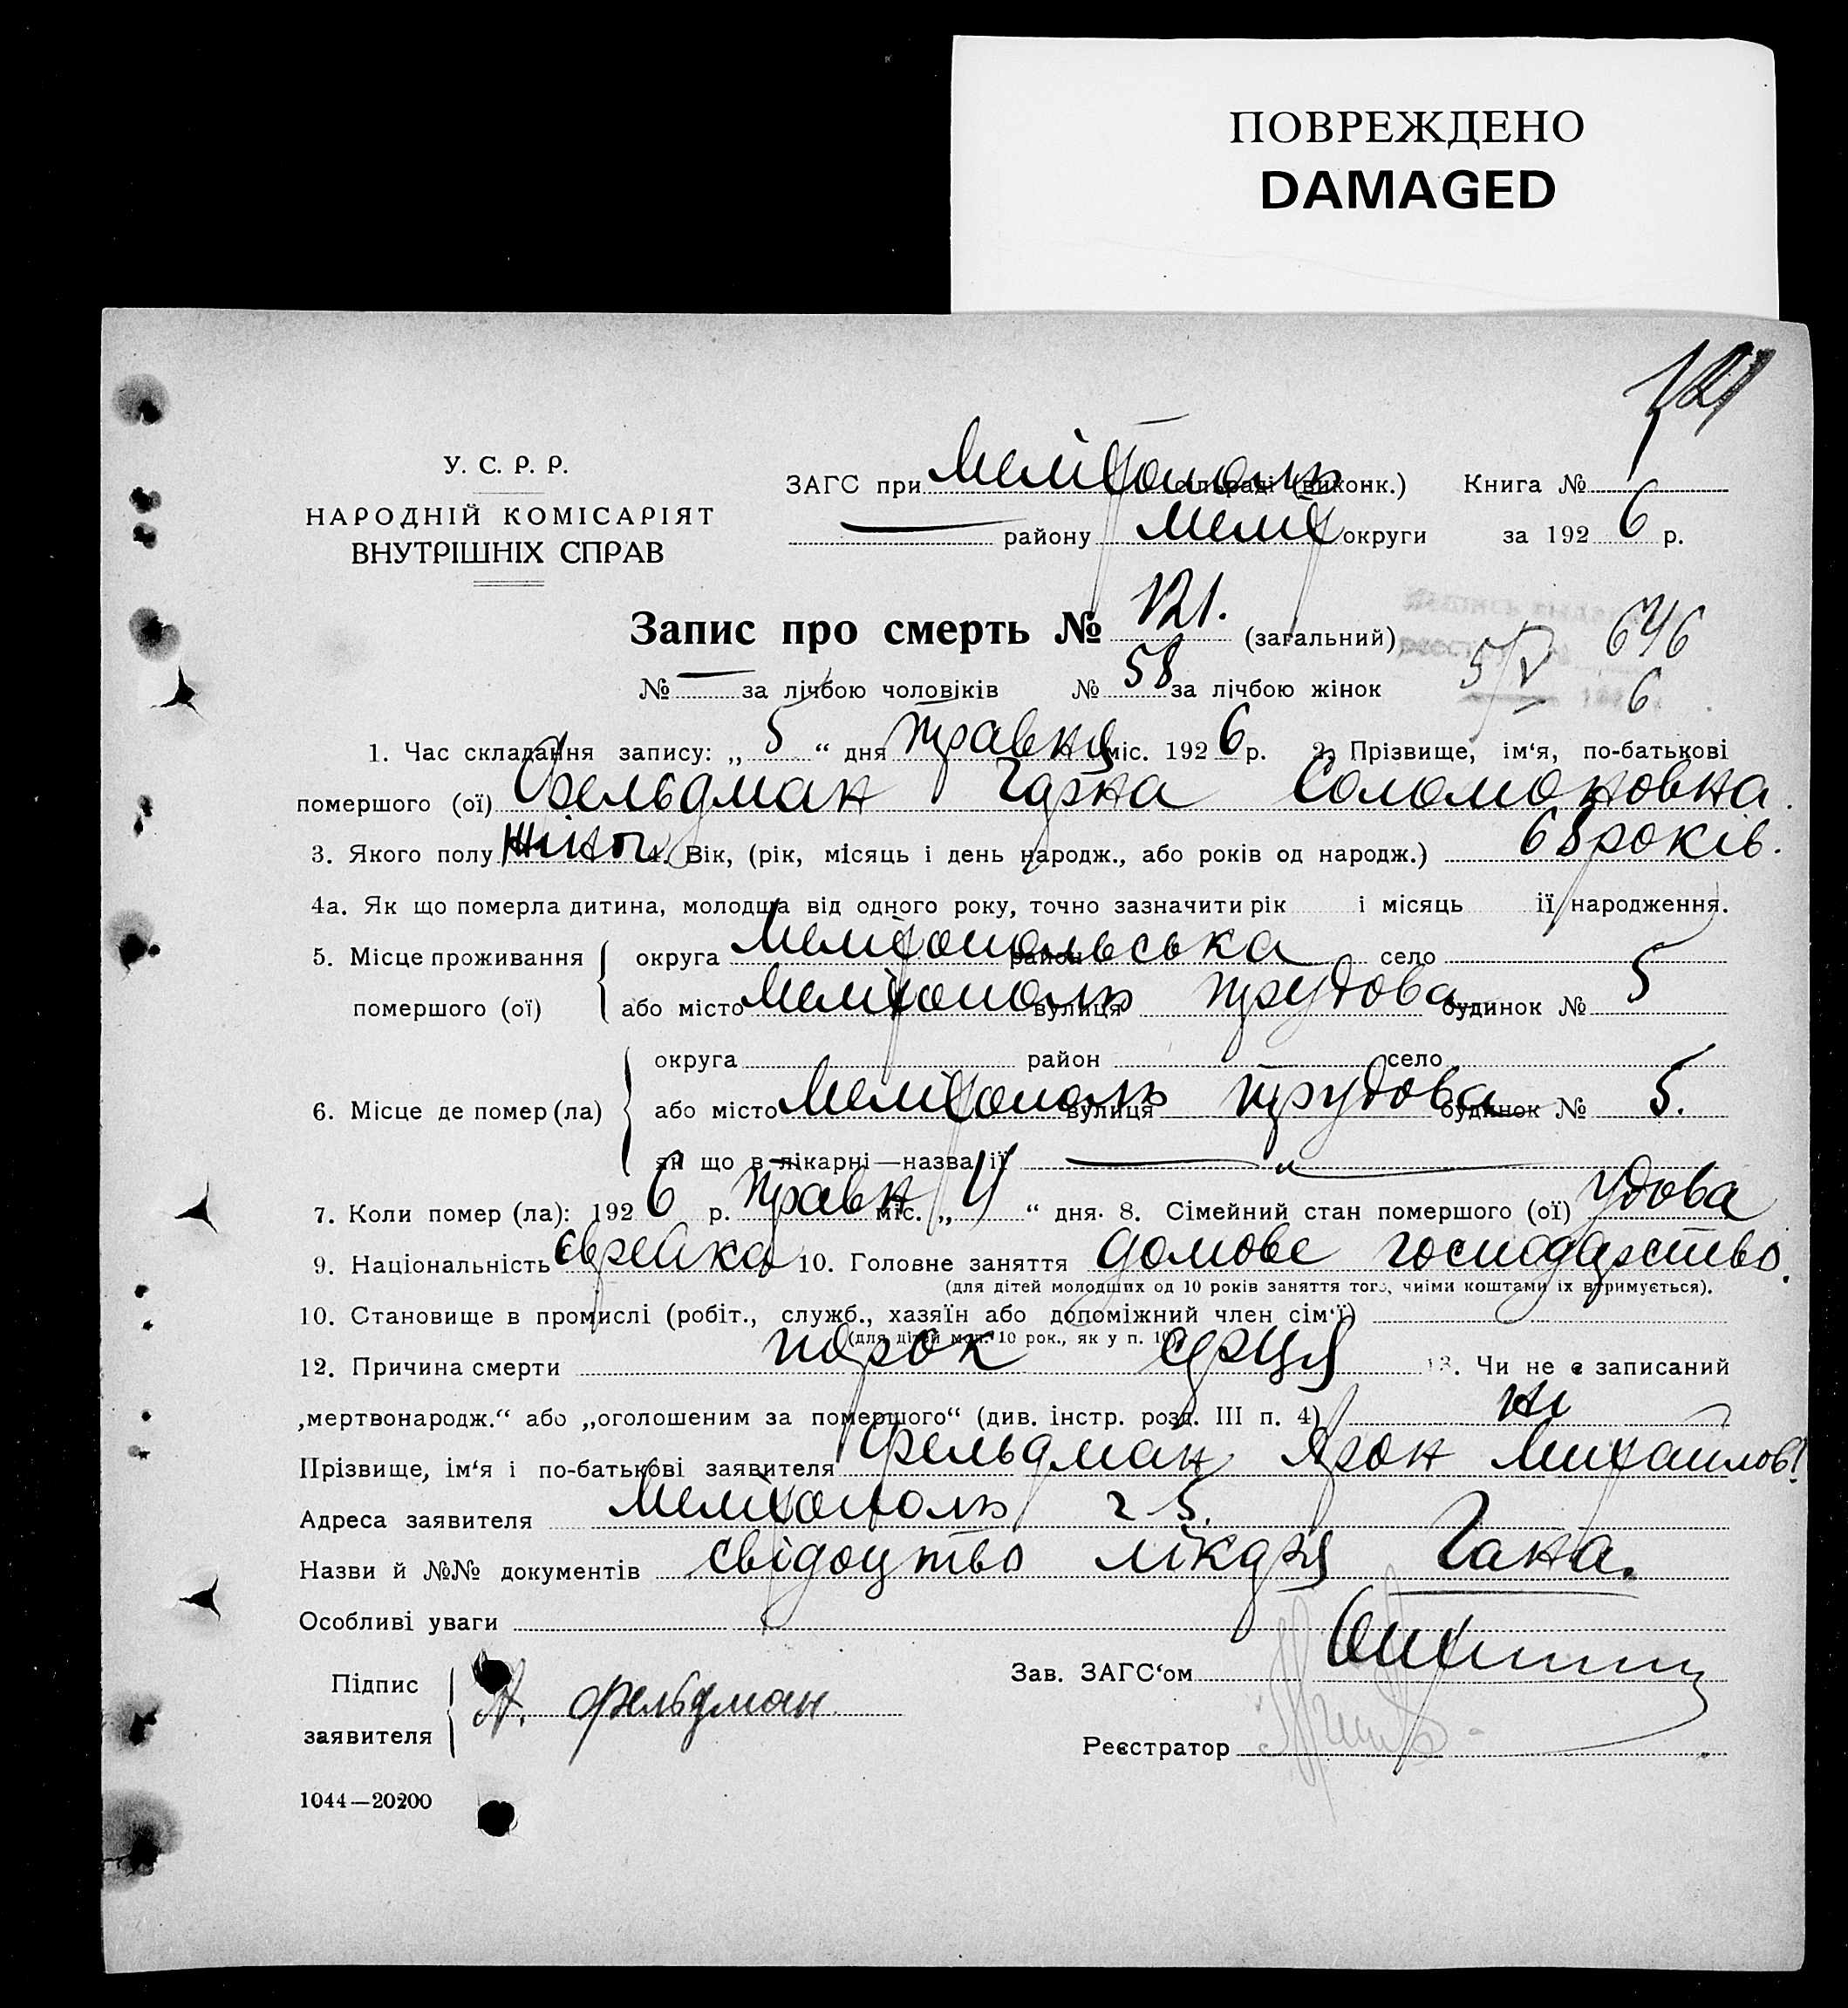 ПОВРЕЖДЕНО
DAMAGED
121
У. С. Р. Р.
НАРОДНІЙ КОМІСАРІЯТ
ВНУТРІШНІХ СПРАВ
ЗАГС при Мелітополь сільраді (виконк.) Книга №
району Меліт округи за 1926 р.
Запис про смерть № 121. (загальний)
646
№ — за лічбою чоловіків № 58 за лічбою жінок 5/V 6
1. Час складання запису: „5“ дня травня міс. 1926 р. 2. Прізвище, ім‘я, по-батькові
помершого (ої) Фельдман Соломоновна
3. Якого полу жіноч. 4. Вік, (рік, місяць і день народж., або років од народж.) 68 років.
4а. Як що померла дитина, молодша від одного року, точно зазначити рік і місяць її народження.
5. Місце проживання округа Мелітопольська район село
помершого (ої) або місто Мелітополь вулиця Трудова будинок № 5
округа район село
6. Місце де помер (ла) або місто Мелітополь вулиця Трудова будинок № 5.
як що в лікарні—назва її — „ —
7. Коли помер (ла): 1926 р. травн міс. „4“ дня. 8. Сімейний стан помершого (ої) удова
9. Національність єврейка 10. Головне заняття домове господарство.
(для дітей молодших од 10 років заняття того, чиїми коштами їх втримується).
10. Становище в промислі (робіт., служб., хазяїн або допоміжний член сім‘ї)
(для дітей мол. 10 рок., як у п. 10)
12. Причина смерти порок серця 13. Чи не є записаний
„мертвонародж.“ або „оголошеним за помершого“ (див. інстр. розд. III п. 4) ні
Прізвище, ім‘я і по-батькові заявителя Фельдман Арон Михаилов.
Адреса заявителя Мелітополь 5.
Назви й №№ документів свідоцтво лікаря Гана.
Особливі уваги
Підпис
заявителя А. Фельдман
Зав. ЗАГС‘ом
Реєстратор
1044—20200